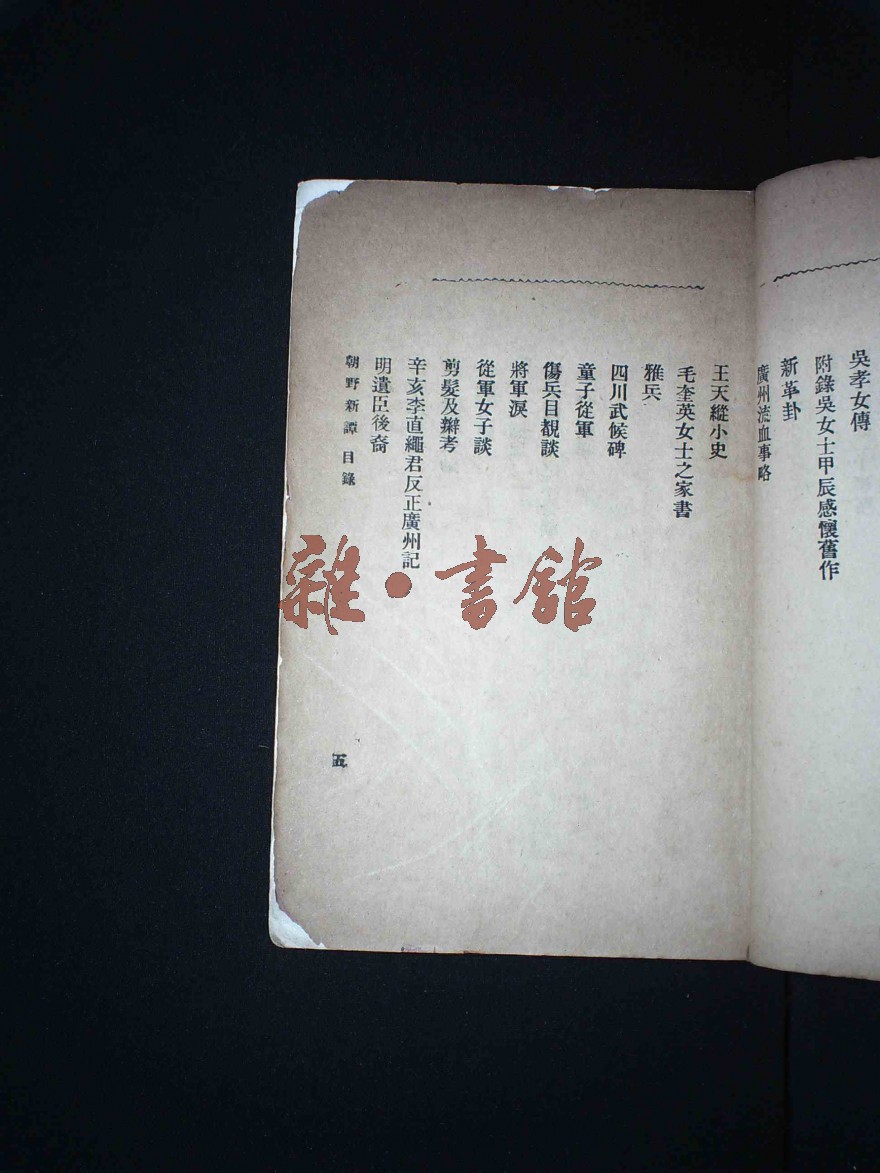 吳孝女傳
附錄吳女士甲辰感懷舊作
新革卦
廣州流血事略
王天縱小史
毛奎英女士之家書
雅兵
四川武候碑
童子從軍
傷兵目覩談
將軍淚
從軍女子談
剪髮及辮考
辛亥李直繩君反正廣州記
明遺臣後裔
朝野新譚 目錄
五
雜·書館